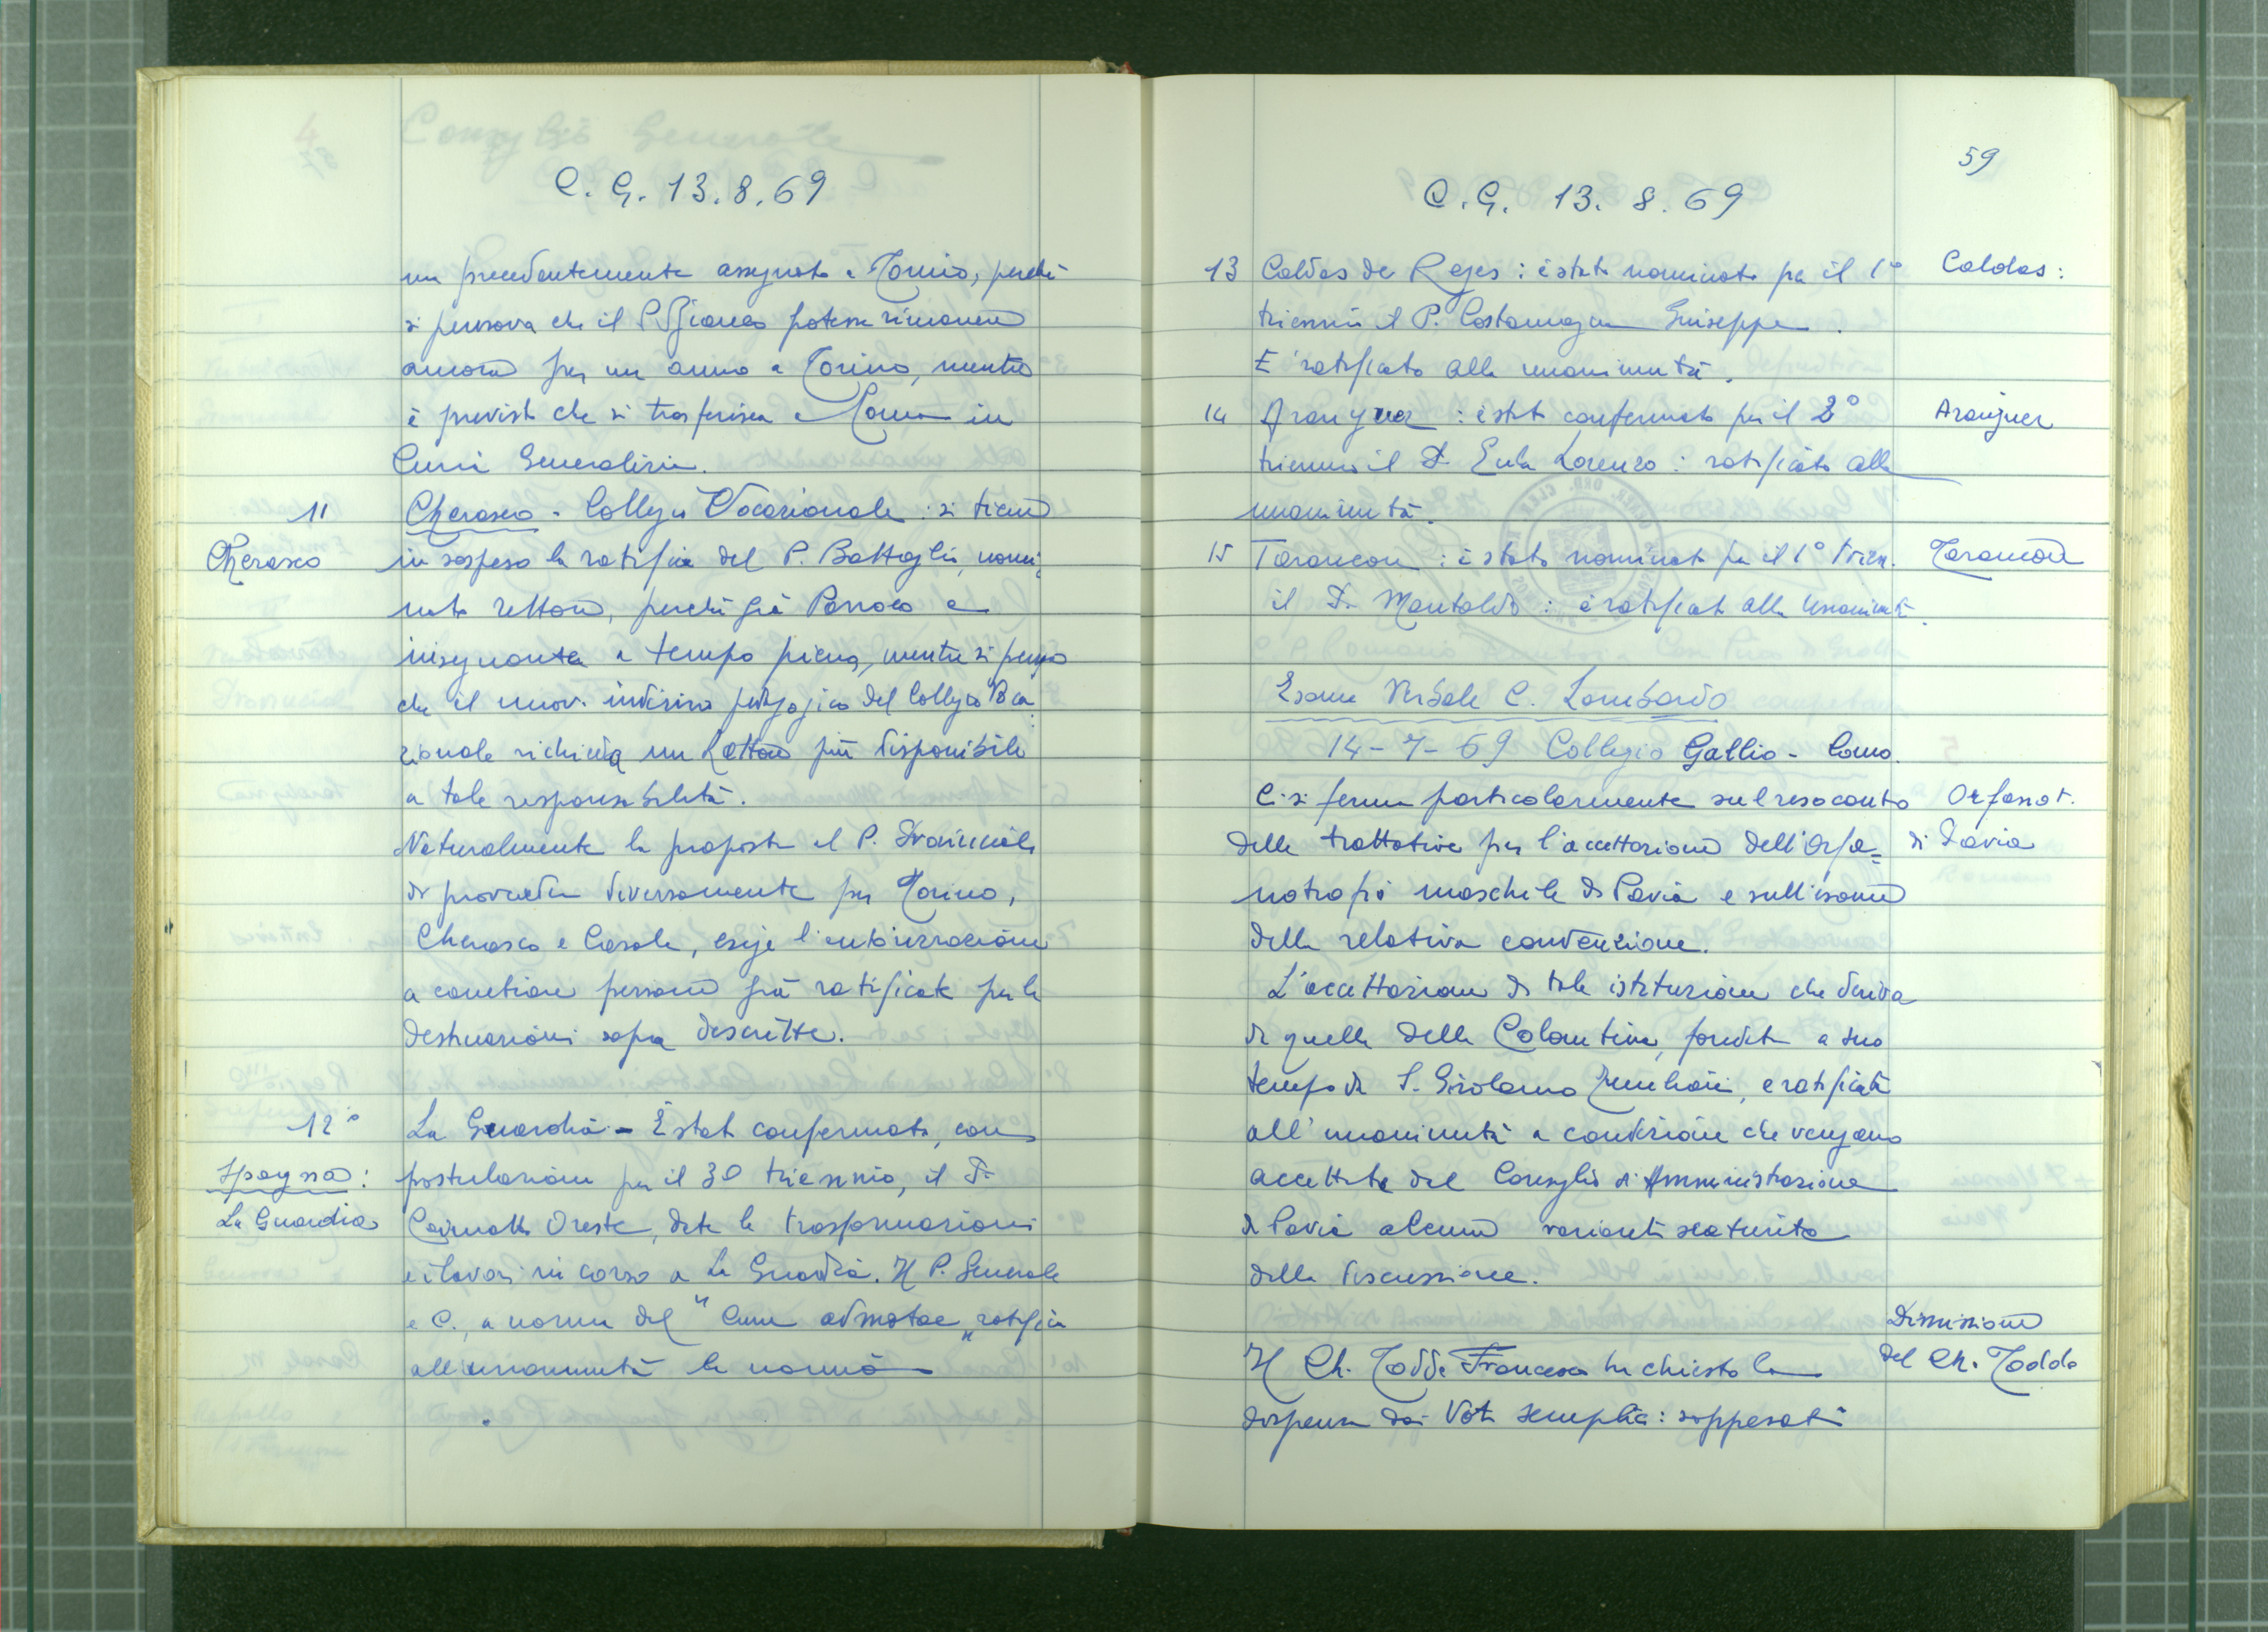 C. G. 13.8.69
un precedentemente assegnato a Torino, perchè
si pensava che il P. potesse rimanere
ancora per un anno a Torino, mentre
è previsto che si trasferisca a Roma in
Curia Generalizia.
11
Cherasco
Cherasco - Collegio Vocazionale : si tiene
in sospeso la ratifica del P. Battaglia, nomi
nato Rettore, perchè già Parroco e
insegnante a tempo pieno, mentre si pensa
che il nuovo indirizzo pedagogico del Collegio Voca
zionale richieda un Rettore più disponibile
a tale responsabilità.
Naturalmente la proposta al P. Provinciale
di provvedere diversamente per Torino,
Cherasco e Casale, esige l'autorizzazione
a cambiare persone già ratificate per le
destinazioni sopra descritte.
12°
Spagna :
La Guardia
La Guardia - È stato confermato, con
postulazione per il 3° triennio, il P.
Caimotto Oreste, date le trasformazioni
e i lavori in corso a La Guardia. Il P. Generale
e C., a norma del "Cum admotae" ratifica
all'unanimità la nomina
59
C. G. 13. 8. 69
13 Caldas de Reyes : è stato nominato per il 1°
Caldas :
triennio il P. Costamagna Giuseppe.
È ratificato alla unanimità.
14 Aranjuez : è stato confermato per il 2°
Aranjuez
triennio il P. Eula Lorenzo : ratificato alla
unanimità.
15 Tarancon : è stato nominato per il 1° trien.
Tarancon
il P. Montaldo : è ratificato alla unanimità.
Esame Verbale C. Lombardo
14-7-69 Collegio Gallio - Como.
Ci si ferma particolarmente sul resoconto
Orfanot.
di Pavia
delle trattative per l'accettazione dell'Orfa=
notrofio maschile di Pavia e sull'esame
della relativa convenzione.
L'accettazione di tale istituzione che deriva
da quella della Colombina, fondata a suo
tempo da S. Girolamo Emiliani, è ratificata
all'unanimità a condizione che vengano
accettate dal Consiglio di Amministrazione
di Pavia alcune varianti scaturite
dalla discussione.
Dimissione
del Ch. Todde
Il Ch. Todde Francesco ha chiesto la
dispensa dai Voti semplici : soppesati